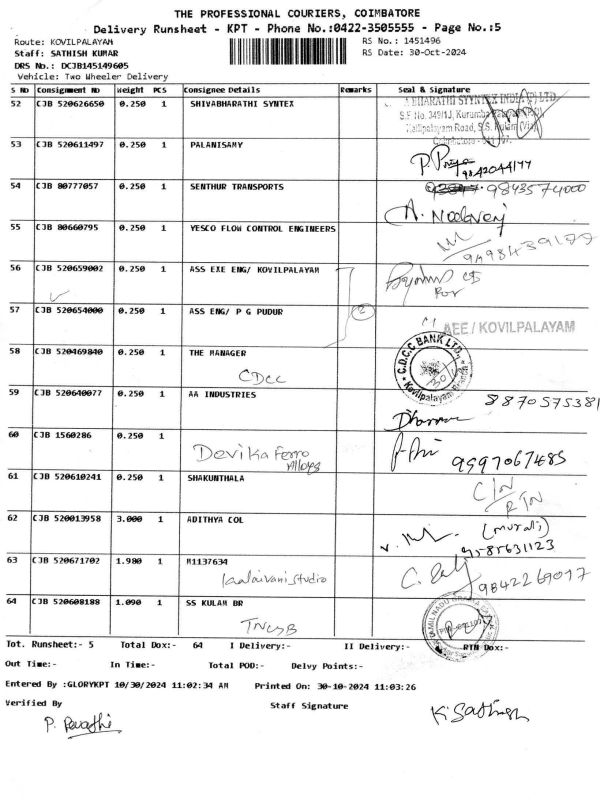 THE PROFESSIONAL COURIERS, COIMBATORE
Delivery Runsheet - KPT - Phone No.:0422-3505555 - Page No.:5
Route: KOVILPALAYAM
RS No.: 1451496
Staff: SATHISH KUMAR
RS Date: 30-Oct-2024
DRS No.: DCJB145149605
Vehicle: Two Wheeler Delivery
S No Consignment No Weight PCS Consignee Details Remarks Seal & Signature
52 CJB 520626650 0.250 1 SHIVABHARATHI SYNTEX
53 CJB 520611497 0.250 1 PALANISAMY
P. Priya
9842044177
54 CJB 80777057 0.250 1 SENTHUR TRANSPORTS
9843574000
55 CJB 80660795 0.250 1 YESCO FLOW CONTROL ENGINEERS
56 CJB 520659002 0.250 1 ASS EXE ENG/ KOVILPALAYAM
57 CJB 520654000 0.250 1 ASS ENG/ P G PUDUR
2
AEE / KOVILPALAYAM
58 CJB 520469840 0.250 1 THE MANAGER
CDCC
C.D.C.C BANK LTD.
Kovilpalayam Branch
59 CJB 520640077 0.250 1 AA INDUSTRIES
8870575381
60 CJB 1560286 0.250 1
Devika Ferro
Alloys
9597067485
61 CJB 520610241 0.250 1 SHAKUNTHALA
C/N
RTN
62 CJB 520013958 3.000 1 ADITHYA COL
(murali)
9585631123
63 CJB 520671702 1.980 1 M1137634
kalaivani studio
9842269017
64 CJB 520608188 1.090 1 SS KULAM BR
Tot. Runsheet:- 5 Total Dox:- 64 I Delivery:- II Delivery:- RTN Dox:-
Out Time:- In Time:- Total POD:- Delvy Points:-
Entered By :GLORYKPT 10/30/2024 11:02:34 AM Printed On: 30-10-2024 11:03:26
Verified By
Staff Signature
P. Revathi
K. Sathish